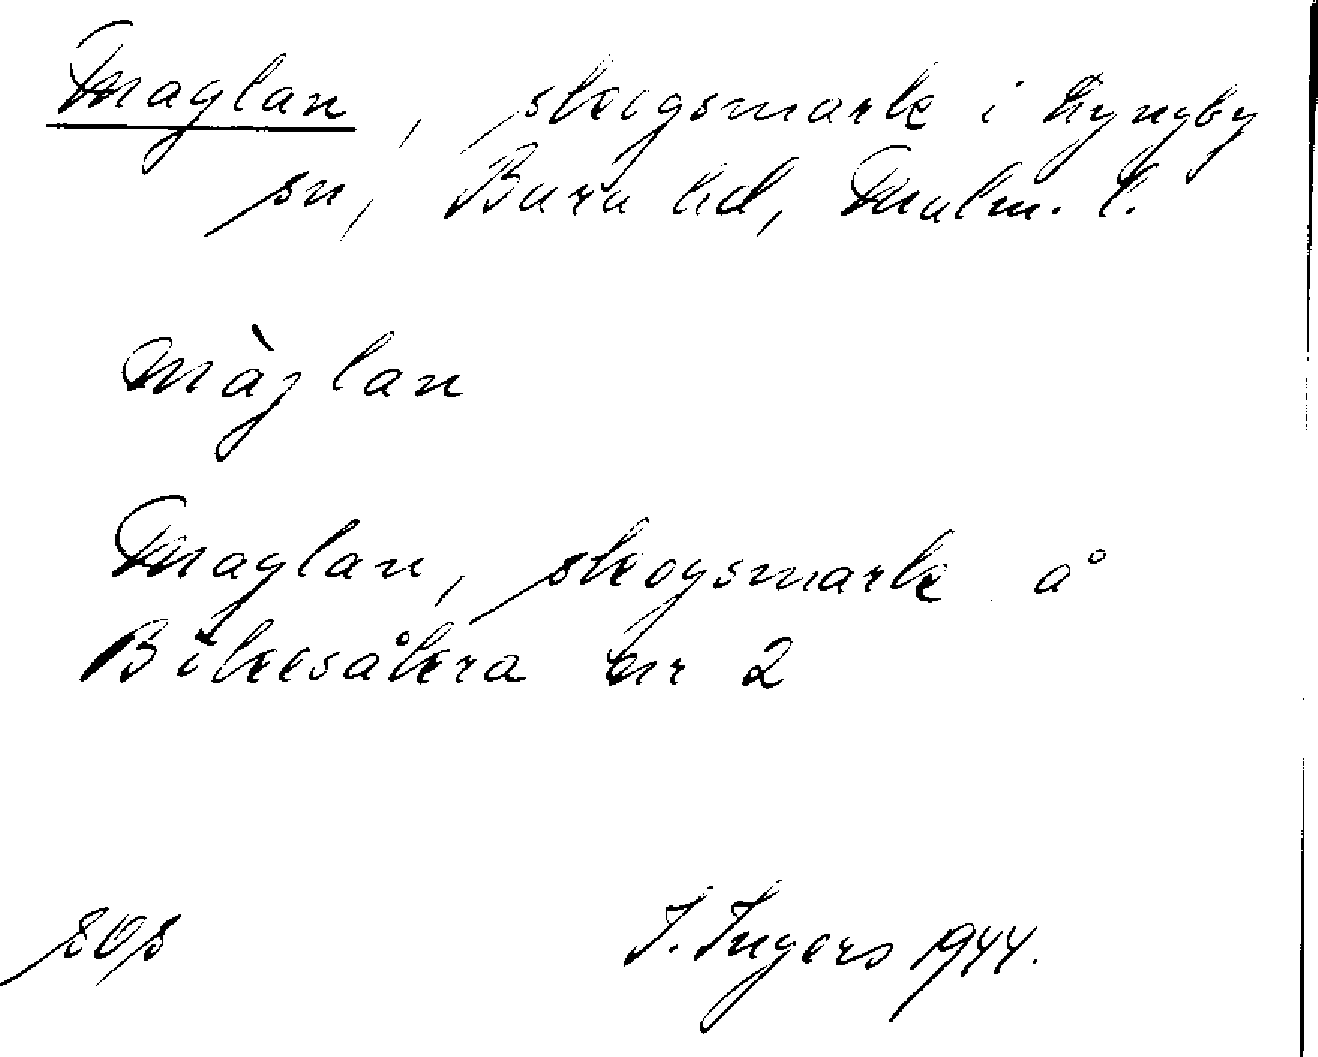 Maglan, skogsmark i Lyngby
sn, Bara hd, Malm. l.
màglan
Maglan, skogsmark å
Bökesåkra nr 2
I. Ingers 1944.